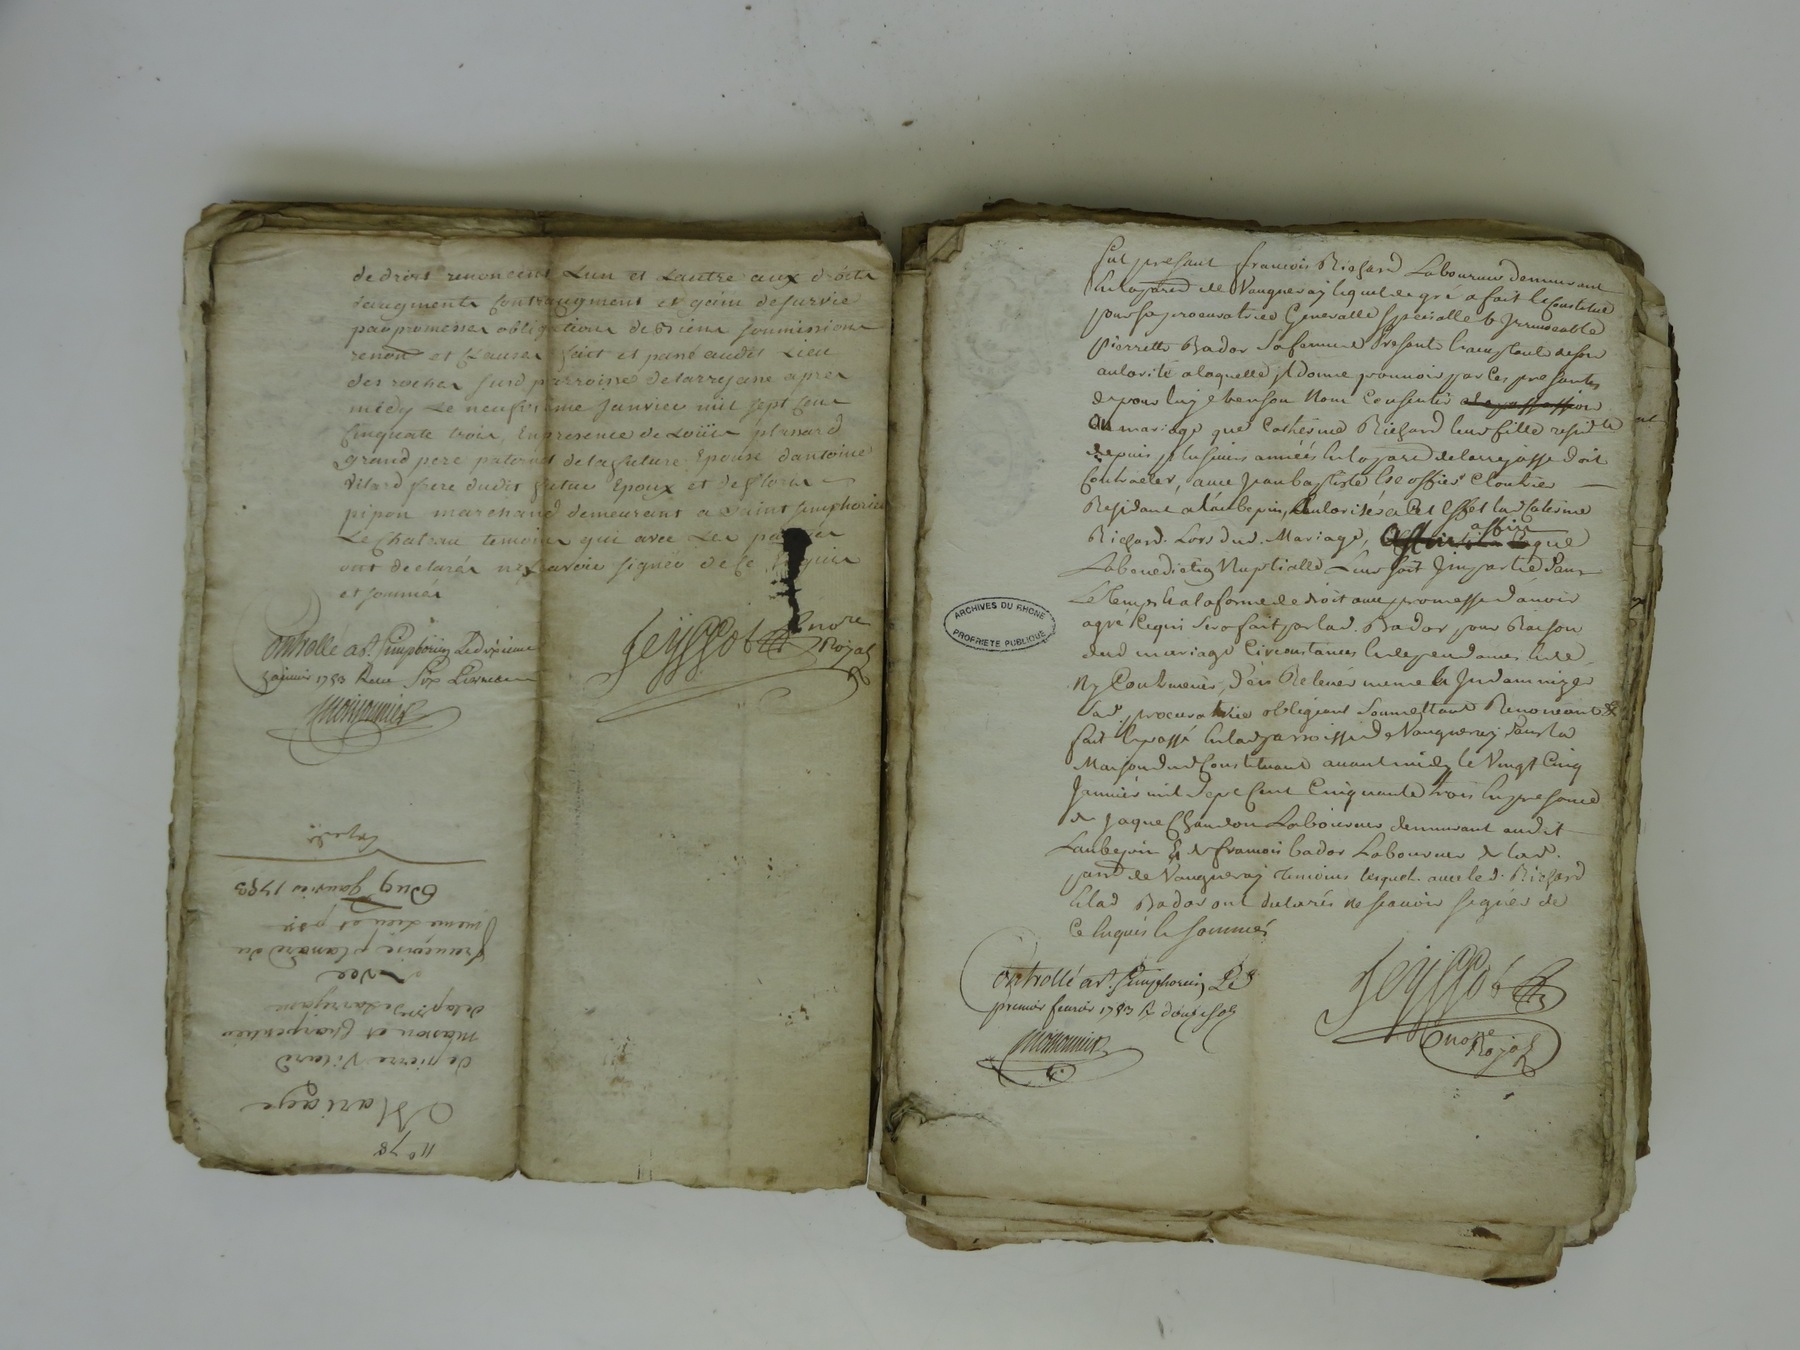 de droit renoncent Lun et Lautre aux droits
daugments Contraugment et gain de survie
par promesses obligations de Biens soumissions
renon et Clauses fait et passé audit Lieu
des rocher susd parroisse de larrejasse apres
midy Le neufvieme Janvier mil sept Cent
Cinquate trois, En presence de Loüis plassard
grand pere paternel de la future Epouse dantoine
Vilard frere dudit futur Epoux et de
pipon marchand demeurant a Saint simphorien
Le Chateau temoins qui avec Les parties
ont declarés ne scavoir signér de Ce Enquis
et sommés
Controllé a St. Simphorien Le dixieme
Janvier 1753 Reçu Six Livres
Monjounier
Seyssot
Notre
Royal
n° 78
Mariage
de pierre Vilard
Masson et Charpentier
de la p.sse de Larrejasse
avec
françoise plassard du
meme Lieu et p.sse
Du 9 Janvier 1753
Expedie
fut presant francois Richard Laboureur demeurant
En la parr de Vaugneray lequel de gré a fait & Constitué
pour sa procuratrice Generalle spescialle & Irrevocable
pierrette Bador sa femme Presente & acceptante de son
autorité a laquelle Jl donne pouvoir par Ces presantes
de pour luy & en son Nom Consentir
au mariage que Catherine Richard leur fille reside
depuis plusieurs années En la parr de larregasse doit
Contracter, avec Jean baptiste Cloutier
Residant a Laubepin, Authorisér a Cet Effet lad Caterine
Richard Lors dud. Mariage, affin que
La benediction Nuptialle Leur soit Jmpartie Dans
Le temps & a la forme de droit avec promesse d'avoir
agré Ce qui sera fait par lad. Bador pour Raison
dud mariage Circonstances & dependances & de
Ny Contrevenir, d'en Relever meme & Indamnizer
Lad. procuratrice obligeant Soumettant Renonceant &
fait & passé En lad parroisse de Vaugneray Dans la
Maison dud Constituant avant midy le Vingt Cinq
Janvier mil Sept Cent Cinquante trois En presence
de Jaque Chandon Laboureur demeurant audit
Laubepin & de francois bador Laboureur de lad.
parr de Vaugneray temoins lesquels avec le d. Richard
& lad Bador ont declarés ne scavoir signer de
Ce Enquis & sommés
Controllé a St. Simphorien Le
premier fevrier 1753 R douze sols
Monjounier
Seyssot
Nore
Royal
ARCHIVES DU RHONE
PROPRIETE PUBLIQUE